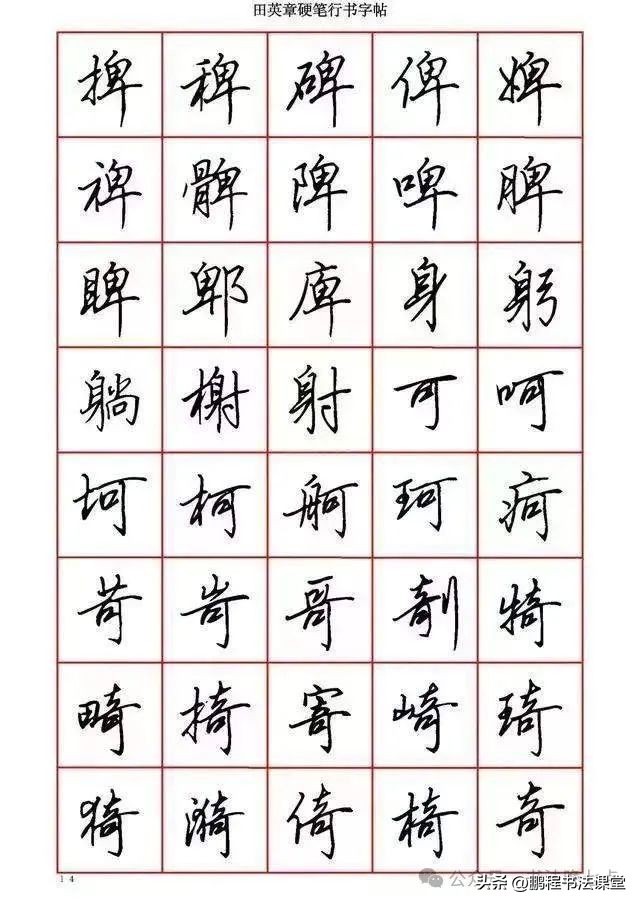 田英章硬笔行书字帖
捭 稗 碑 俾 婢
裨 髀 陴 啤 脾
睥 郫 庳 身 躬
躺 榭 射 可 呵
坷 柯 舸 珂 疴
苛 岢 哥 剞 犄
畸 掎 寄 崎 琦
猗 漪 倚 椅 奇
14
公众号
头条@鹏程书法课堂